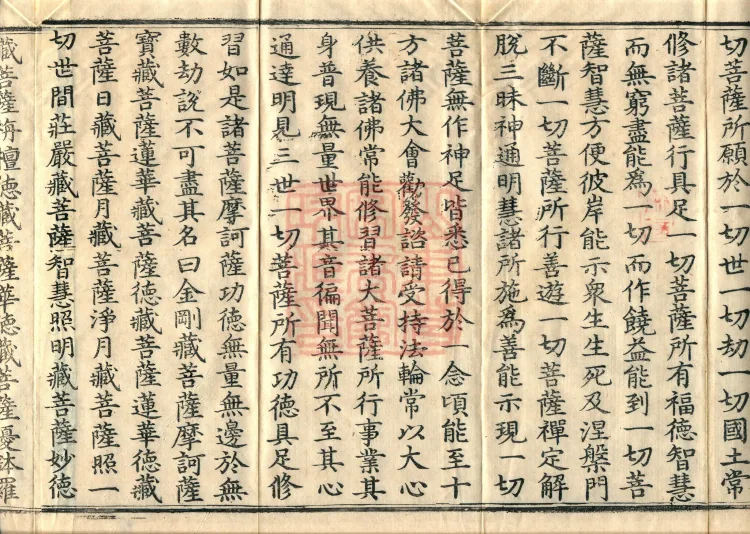 切菩薩所願於一切世一切劫一切國土常
修諸菩薩行具足一切菩薩所有福德智慧
而無窮盡能為一切而作饒益能到一切菩
薩智慧方便彼岸能示眾生生死及涅槃門
不斷一切菩薩所行善遊一切菩薩禪定解
脫三昧神通明慧諸所施為善能示現一切
菩薩無作神足皆悉已得於一念頃能至十
方諸佛大會勸發諮請受持法輪常以大心
供養諸佛常能修習諸大菩薩所行事業其
身普現無量世界其音徧聞無所不至其心
通達明見三世一切菩薩所有功德具足修
習如是諸菩薩摩訶薩功德無量無邊於無
數劫說不可盡其名曰金剛藏菩薩摩訶薩
寶藏菩薩蓮華藏菩薩德藏菩薩蓮華德藏
菩薩日藏菩薩月藏菩薩淨月藏菩薩照一
切世間莊嚴藏菩薩智慧照明藏菩薩妙德
藏菩薩栴檀德藏菩薩華德藏菩薩憂鉢羅